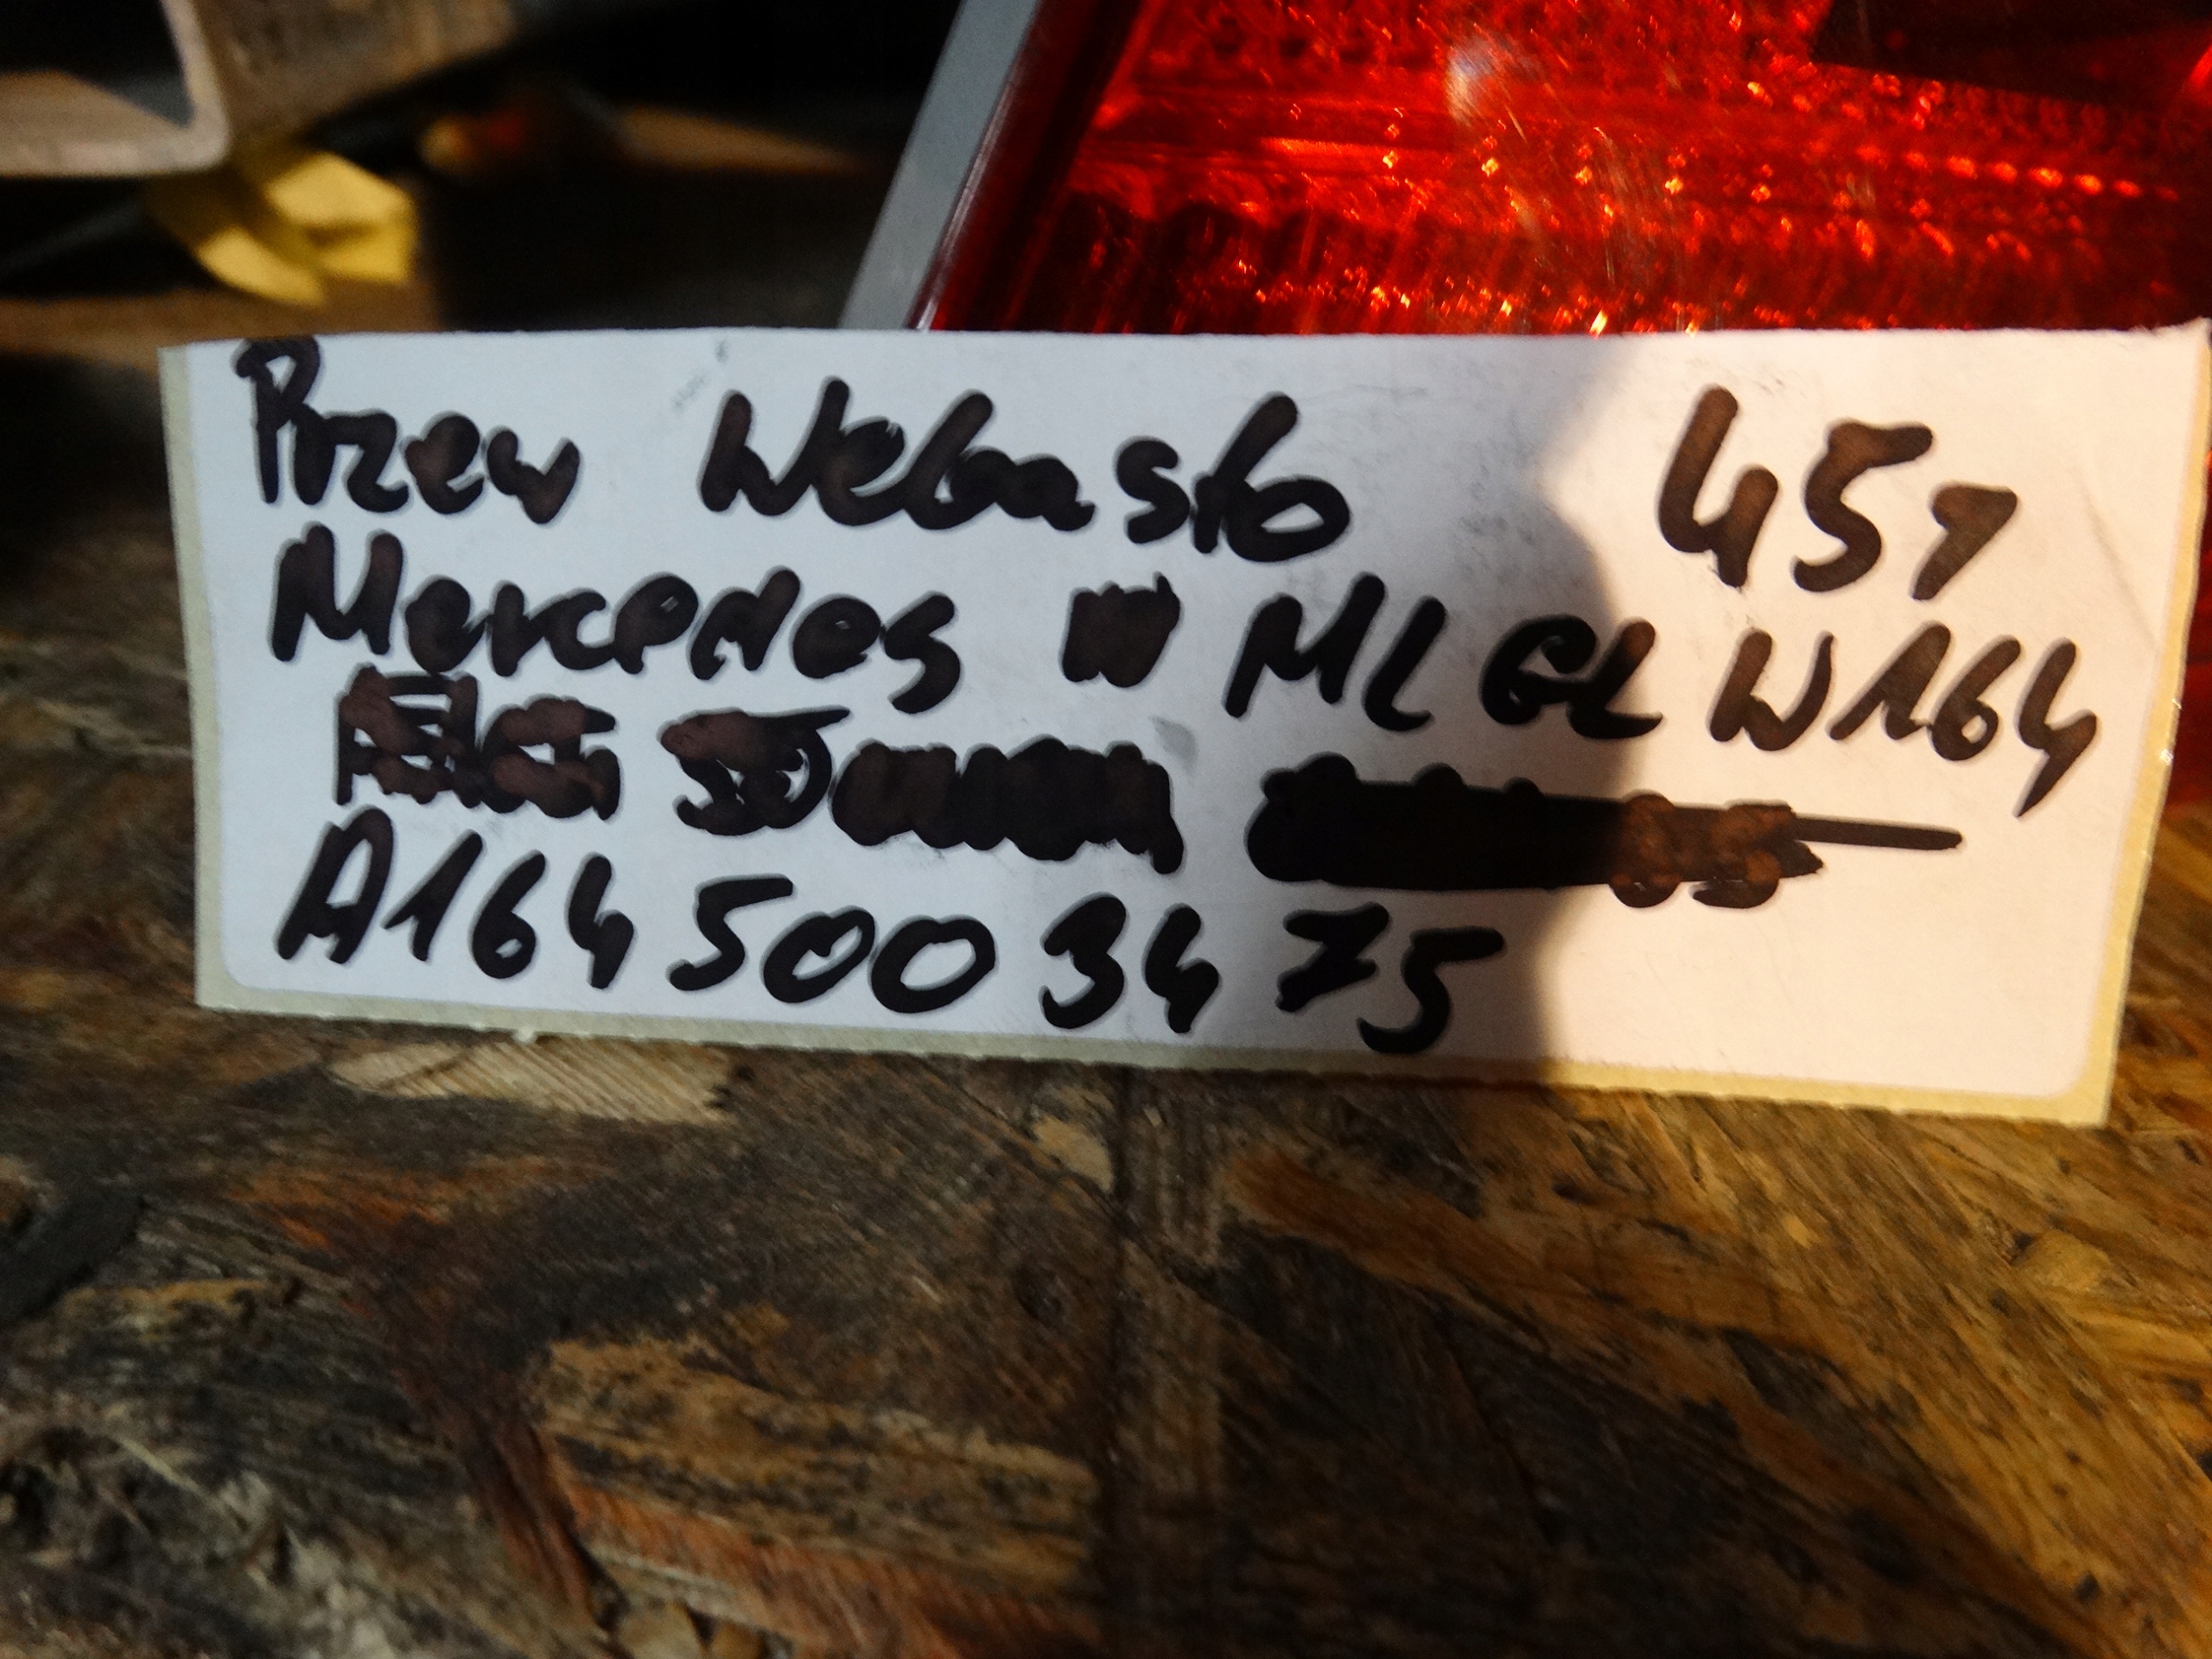 Przew Webasto 451
Mercedes ML GL W164
A164 500 34 75